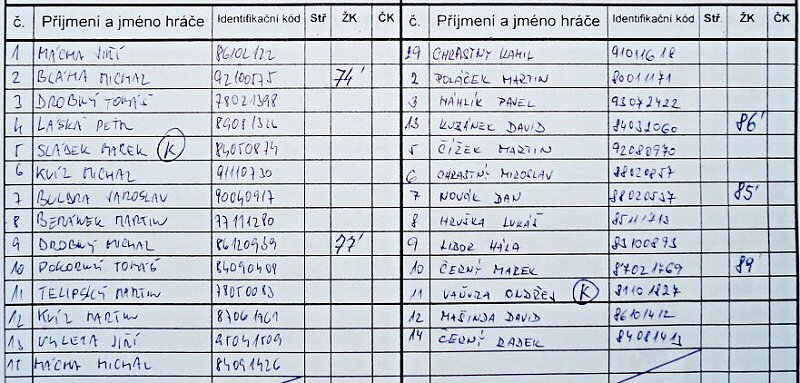 č. Příjmení a jméno hráče Identifikační kód Stř ŽK ČK
1 MÁCHA JIŘÍ 86102122
2 BLÁHA MICHAL 92100575 74'
3 DROBNÝ TOMÁŠ 78021398
4 LASKA PETR 89081326
5 SLÁDEK MAREK K 84050874
6 KVÍZ MICHAL 91110730
7 BULDRA JAROSLAV 90040917
8 BERÁNEK MARTIN 77111280
9 DROBNÝ MICHAL 86120959 77'
10 POKORNÝ TOMÁŠ 84090408
11 TELIPSKÝ MARTIN 78050083
12 KVÍZ MARTIN 87061961
13 VYLETA JIŘÍ 95041509
15 MÁCHA MICHAL 84091426
č. Příjmení a jméno hráče Identifikační kód Stř ŽK ČK
29 CHRASTNÝ KAMIL 91011618
2 POLÁČEK MARTIN 80011171
3 MÁHLÍK PAVEL 93072422
13 KUZÁNEK DAVID 84032060 86'
5 ČÍŽEK MARTIN 92080970
6 CHRASTNÝ MIROSLAV 88020857
7 NOVÁK DAN 88020537 85'
8 HRUŠKA LUKÁŠ 85111713
9 LIBOR HÁLA 83100893
10 ČERNÝ MAREK 87021769 89'
11 VAŇURA ONDŘEJ K 81101827
12 MAŠINDA DAVID 86101412
14 ČERNÝ RADEK 84081413